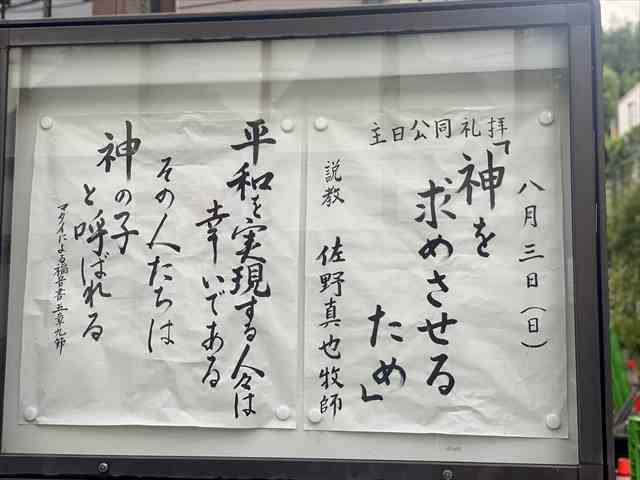 八月三日(日)
主日公同礼拝
「神を
求めさせる
ため」
説教 佐野真也牧師
平和を実現する人々は
幸いである
その人たちは
神の子
と呼ばれる
マタイによる福音書五章九節